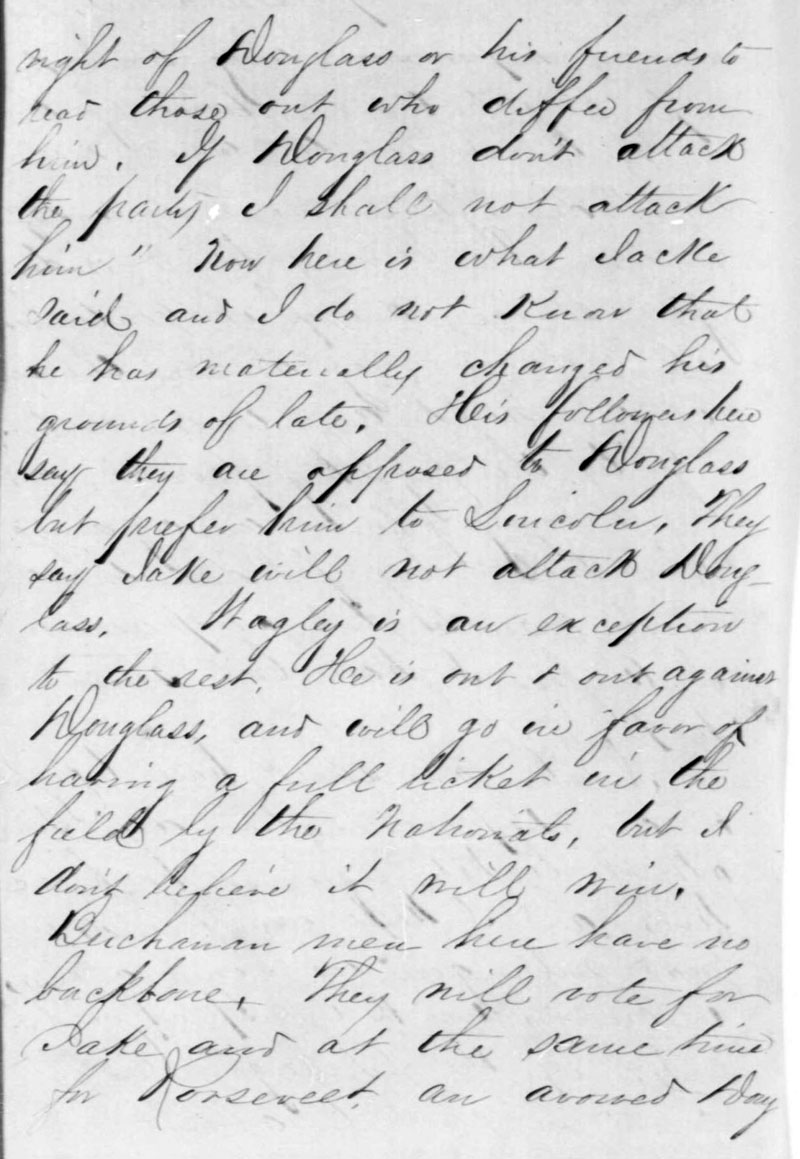 right of Douglass or his friends to
read those out who differ from
him. If Douglass don't attack
the party I shall not attack
him" Now here is what Jacke
said and I do not know that
he has materially changed his
grounds of late. His followers here
say they are opposed to Douglass
but prefer him to Lincoln. They
say Jake will not attack Doug-
lass. Wagley is an exception
to the rest. He is out & out against
Douglass, and will go in favor of
having a full ticket in the
field by the Nationals, but I
don't believe it will win.
Buchanan men here have no
backbone. They will vote for
Jake and at the same time
for Roosevelt an avowed Doug